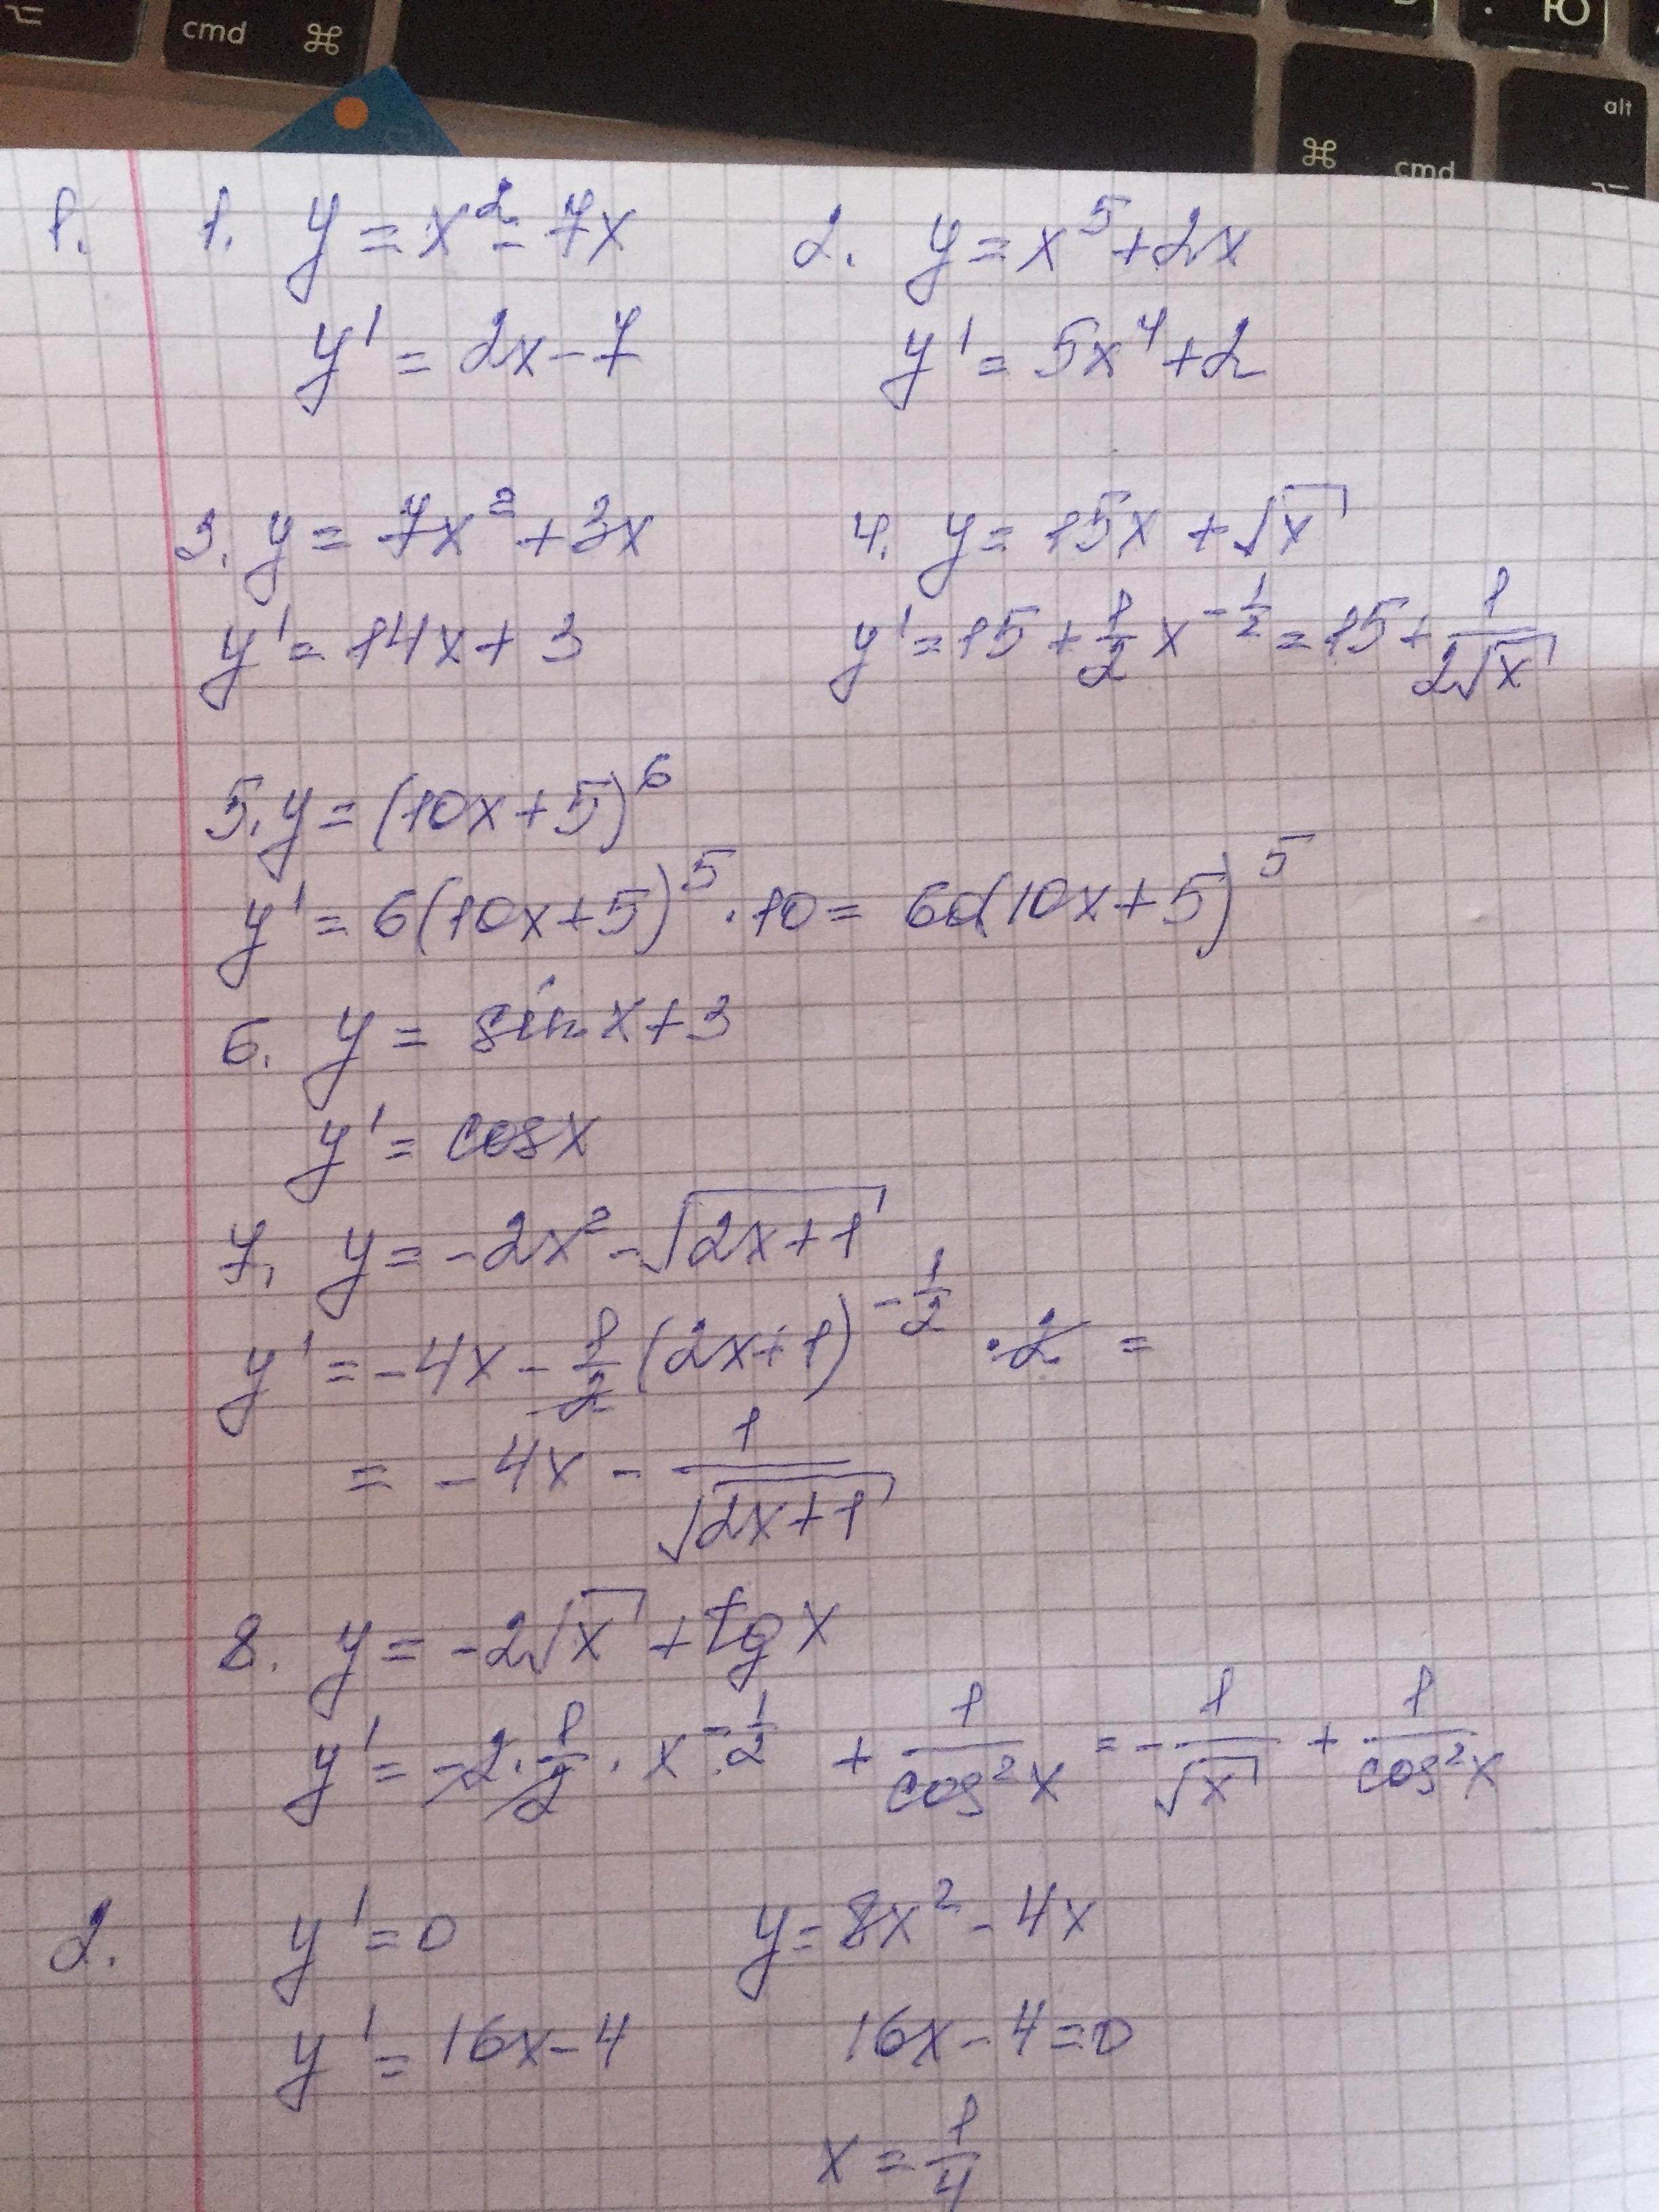 cmd ⌘ Ю alt
⌘ cmd
1. 1. y = x² - 7x 2. y = x⁵ + 2x
y' = 2x - 7 y' = 5x⁴ + 2
3. y = 7x² + 3x 4. y = 15x + √x
y' = 14x + 3 y' = 15 + 1/2 x^(-1/2) = 15 + 1/(2√x)
5. y = (10x + 5)⁶
y' = 6(10x + 5)⁵ · 10 = 60(10x + 5)⁵
6. y = sin x + 3
y' = cos x
7. y = -2x² - √(2x + 1)
y' = -4x - 1/2 (2x + 1)^(-1/2) · 2 =
= -4x - 1/√(2x + 1)
8. y = -2√x + tg x
y' = -2 · 1/2 · x^(-1/2) + 1/cos²x = -1/√x + 1/cos²x
2. y' = 0 y = 8x² - 4x
y' = 16x - 4 16x - 4 = 0
x = 1/4